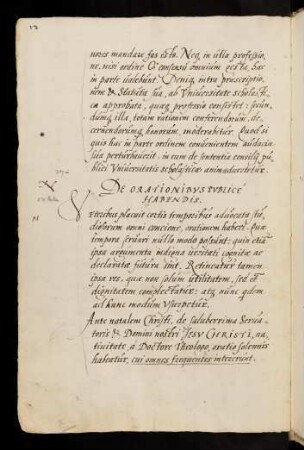 12
nores mandare, fas esto. Neq in illa professio
ne, nisi ordine & consensu omnium gesta, hac
in parte valebunt. Deniq intra præscriptio
nem & Statuta sua, ab Vniuersitate scholastica
approbata, quæq professio consistet: secun
dumq illa, totam rationem conferendorum, de
cernendorumq honorum, moderabitur. Quod si
quis hac in parte ordinem conuenientem audacia
sua perturbauerit, in eum de sententia consilij pu
blici Vniuersitatis scholasticæ animaduertetur.
DE ORATIONIBVS PVBLICE
HABENDIS.
Veteribus placuit certis temporibus aduocata stu
diosorum omni concione, orationem haberi. quæ
tempora seruari nullo modo possunt: quin etiam
ipsa argumenta indigna vestrati cognita ac
declarata futura sint. Retineatur tamen
ipsa res, quæ non solum utilitatem, sed &
dignitatem complectatur: atq nunc quidem
ad hunc modum vsurpetur.
Ante natalem Christi, de saluberrima Serua
toris & Domini nostri IESV CHRISTI, na
tiuitate, a Doctore Theologo, oratio solennis
habeatur, cui omnes frequentes intererunt.